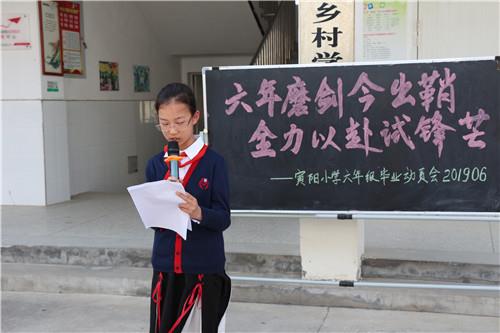 乡村学
六年磨剑今出鞘
全力以赴试锋芒
——寅阳小学六年级毕业动员会201906